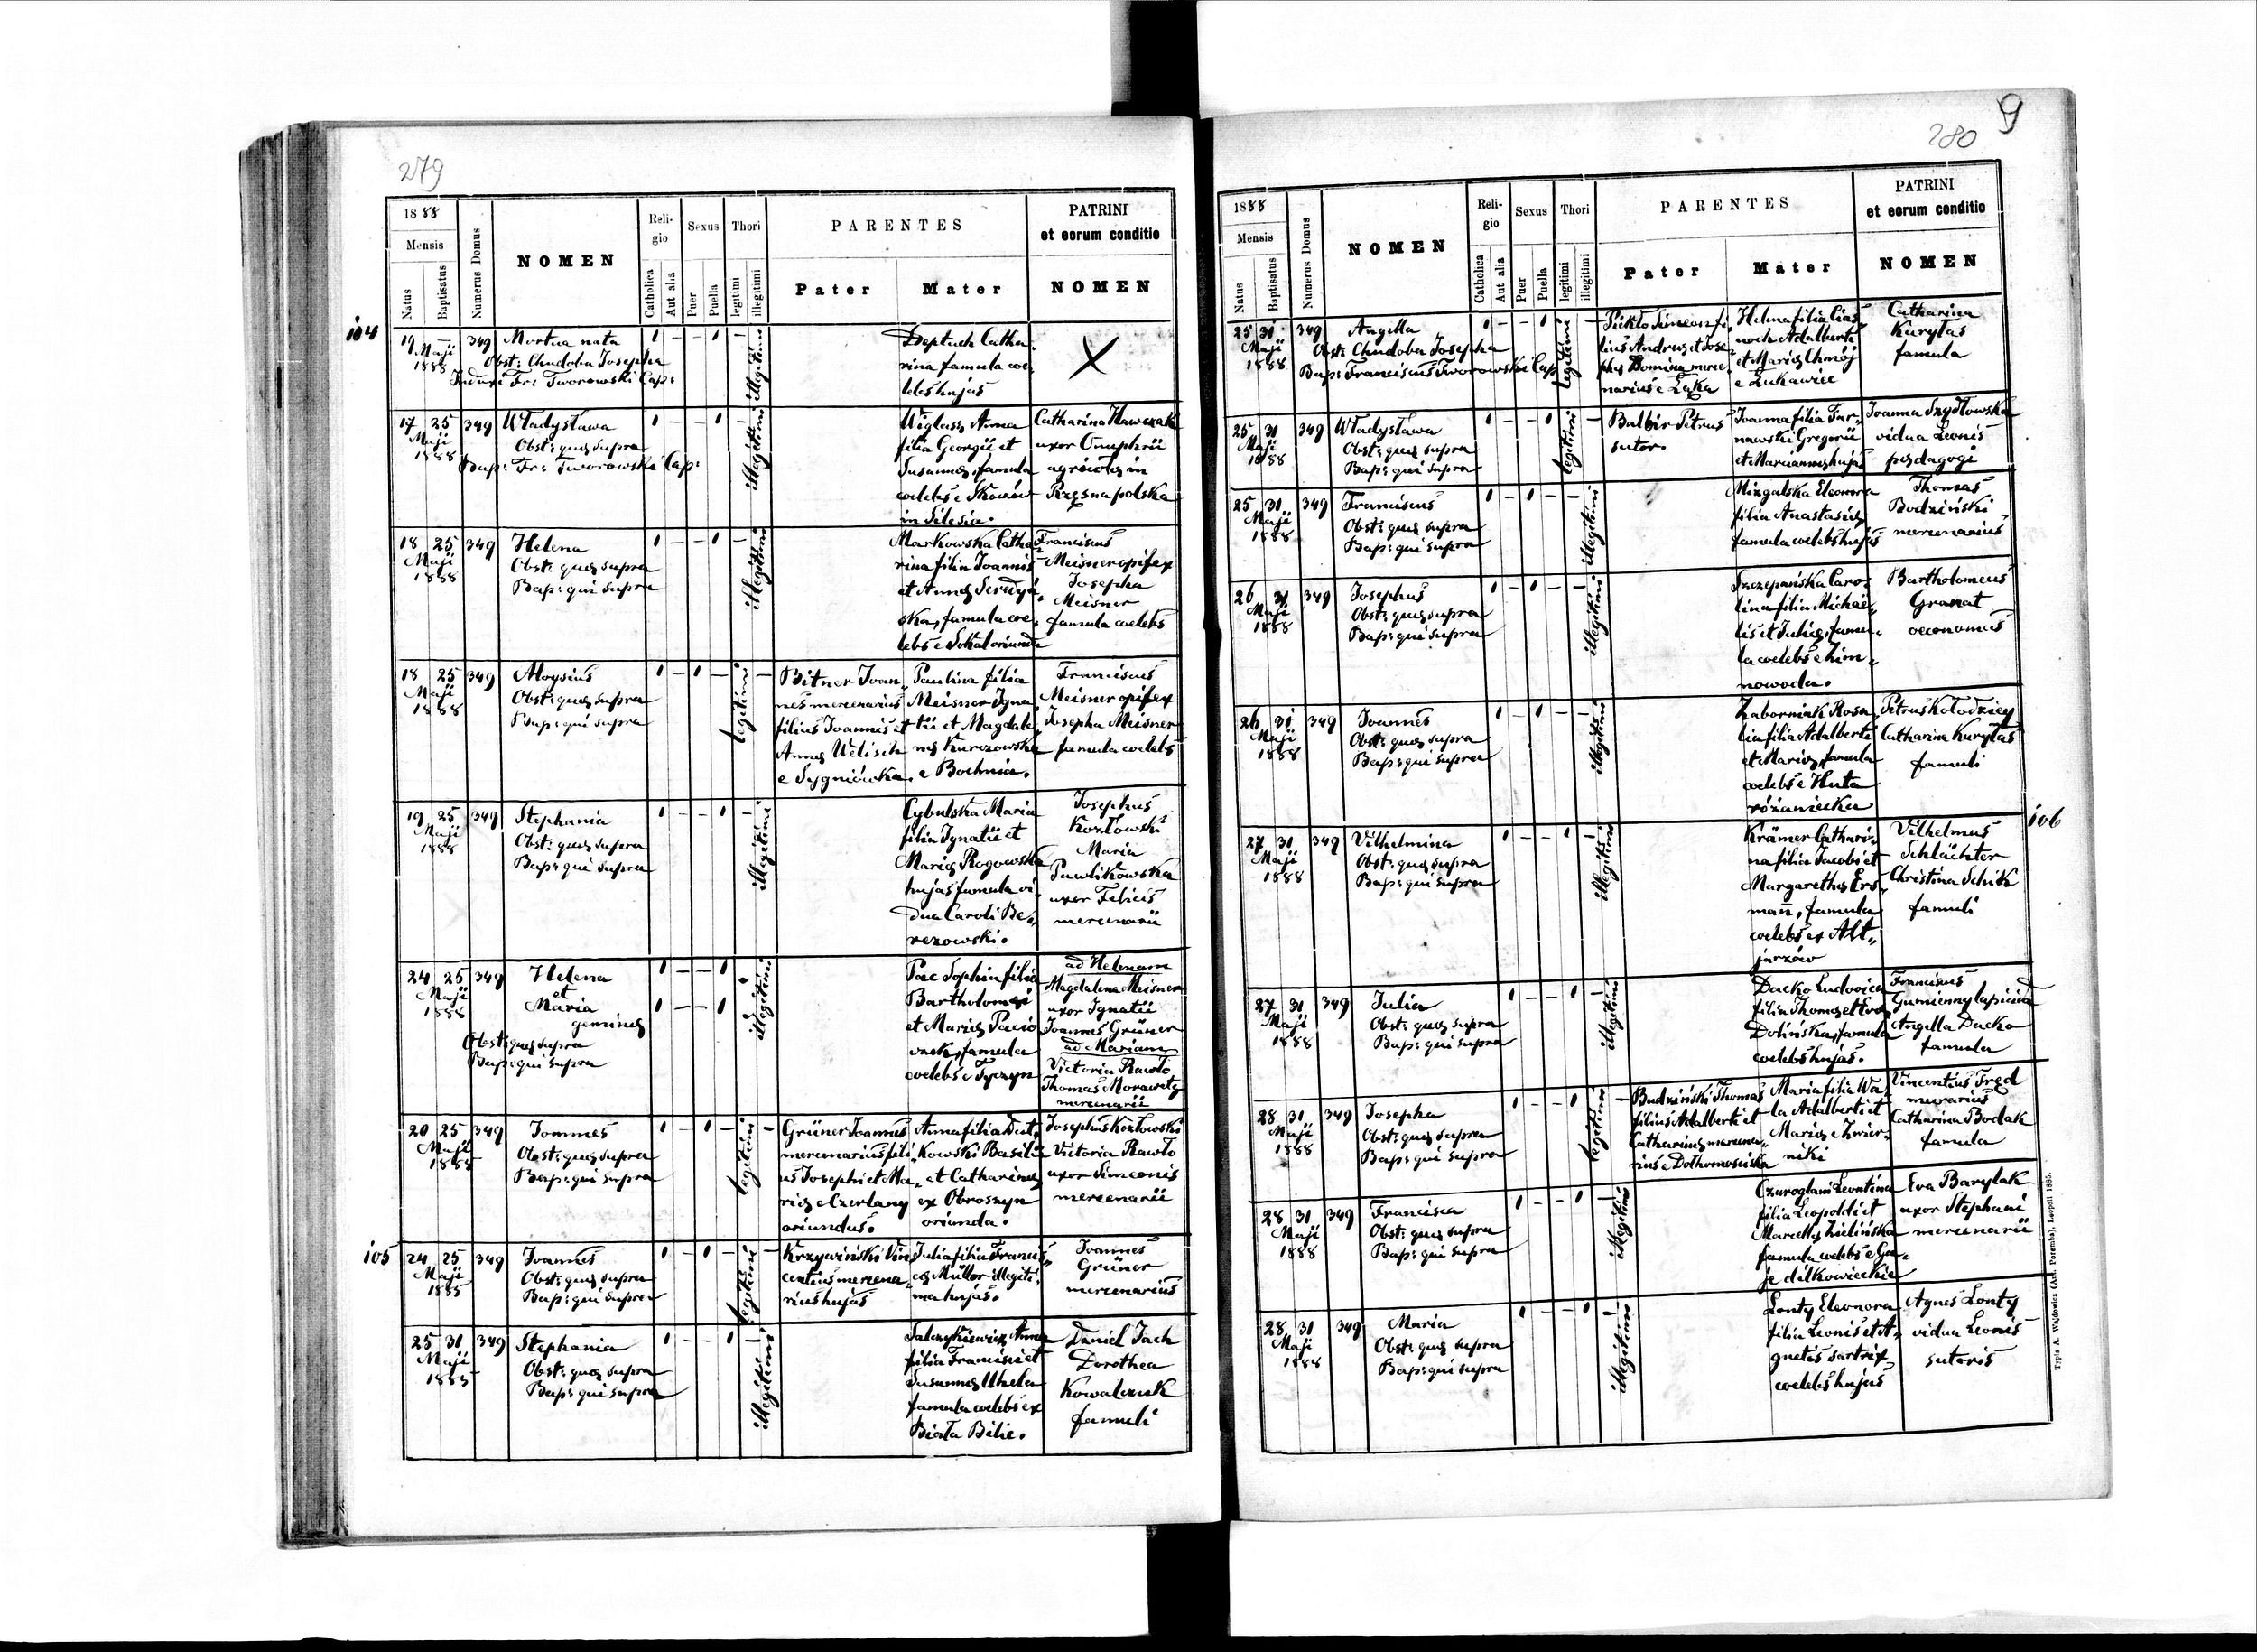 279
1888
Mensis
Natus
Baptisatus
Numerus Domus
NOMEN
Religio
Catholica
Aut alia
Sexus
Puer
Puella
Thori
legitimi
illegitimi
PARENTES
Pater
Mater
PATRINI
et eorum conditio
NOMEN
104
19 – 349 Mortua nata
Maji
1888
Obst: Chudoba Josepha
Fr: Tworowski Cap:
illegitimi
Deptuch Catha
rina famula coe
lebs hujas
X
17 25 349 Władysława
Maji
1888
Obst: quæ supra
Bap: Fr: Tworowski Cap:
illegitimi
Wiglasz Anna
filia Georgii et
Susannæ, famula
coelebs e Skoczów
in Silesia.
Catharina Hawczak
uxor Onuphrii
agricolæ in
Rzęsna polska
18 25 349 Helena
Maji
1888
Obst: quæ supra
Bap: qui supra
illegitimi
Markowska Catha
rina filia Joannis
et Annæ Seredyń
ska, famula coe
lebs e Sokal oriunda
Franciscus
Meisner opifex
Josepha
Meisner
famula coelebs
18 25 349 Aloysius
Maji
1888
Obst: quæ supra
Bap: qui supra
legitimi
Bitner Joan
nes mercenarius
filius Joannis et
Annæ Welisch
e Sygniówka.
Paulina filia
Meisner Igna
tii et Magdale
næ Kurczowska
e Bochnia.
Franciscus
Meisner opifex
Josepha Meisner
famula coelebs
19 25 349 Stephania
Maji
1888
Obst: quæ supra
Bap: qui supra
illegitimi
Cybulska Maria
filia Ignatii et
Mariæ Rogowska
hujas famula vi
dua Caroli Be
rezowski.
Josephus
Kozłowski
Maria
Pawlikowska
uxor Felicis
mercenarii
24 25 349 Helena
Maji
1888
et
Maria
geminæ
Obst: quæ supra
Bap: qui supra
illegitimi
Pac Sophia filia
Bartholomæi
et Mariæ Pacio
rek, famula
coelebs e Tyczyn
ad Helenam
Magdalena Meisner
uxor Ignatii
Joannes Grüner
ad Mariam
Victoria Rawło
Thomas Morawetz
mercenarii
20 25 349 Joannes
Maji
1888
Obst: quæ supra
Bap: qui supra
legitimi
Grüner Joannes
mercenarius fili
us Josephi et Ma
riæ e Czerlany
oriundus.
Anna filia Dut
kowski Basilii
et Catharinæ
ex Obroszyn
oriunda.
Josephus Kozłowski
Victoria Rawło
uxor Simeonis
mercenarii
105
24 25 349 Joannes
Maji
1888
Obst: quæ supra
Bap: qui supra
legitimi
Krzywiński Vin
centius mercena
rius hujas
Julia filia Francis
cæ Müller illegiti
ma hujas.
Joannes
Grüner
mercenarius
25 31 349 Stephania
Maji
1888
Obst: quæ supra
Bap: qui supra
illegitimi
Anna
filia Francisci et
Susannæ
famula coelebs ex
Biała Bilic.
Daniel Jach
Dorothea
Kowalczuk
famuli
280
9
1888
Mensis
Natus
Baptisatus
Numerus Domus
NOMEN
Religio
Catholica
Aut alia
Sexus
Puer
Puella
Thori
legitimi
illegitimi
PARENTES
Pater
Mater
PATRINI
et eorum conditio
NOMEN
25 31 349 Angella
Maji
1888
Obst: Chudoba Josepha
Bap: Franciscus Tworowski Cap
legitimi
Piekło Simeon fi
lius Andreæ et Jose
phæ Domina merce
narius e Łąka
Helena filia Cias
noch Adalberti
et Mariæ Chmój
e Łukawiec
Catharina
Kurylas
famula
25 31 349 Władysława
Maji
1888
Obst: quæ supra
Bap: qui supra
legitimi
Balbir Petrus
sutor.
Joanna filia Tar
nawski Gregorii
et Mariannæ hujas
Joanna Szydłowska
vidua Leonis
pædagogi
25 31 349 Franciscus
Maji
1888
Obst: quæ supra
Bap: qui supra
illegitimi
Mizgalska Eleonora
filia Anastasiæ
famula coelebs hujas
Thomas
Bodziński
mercenarius
26 31 349 Josephus
Maji
1888
Obst: quæ supra
Bap: qui supra
illegitimi
Szczepańska Caro
lina filia Michae
lis et Juliæ, famu
la coelebs e Zim
nowoda.
Bartholomeus
Granat
oeconomus
26 31 349 Joannes
Maji
1888
Obst: quæ supra
Bap: qui supra
illegitimi
Zaborniak Rosa
lia filia Adalberti
et Mariæ, famula
coelebs e Huta
różaniecka
Petrus Kołodziey
Catharina Kurylas
famuli
106
27 31 349 Vilhelmina
Maji
1888
Obst: quæ supra
Bap: qui supra
illegitimi
Krämer Cathari
na filia Jacobi et
Margarethæ Ers
mañ, famula
coelebs ex Alt
jarzów
Vilhelmus
Schlächter
Christina Schik
famuli
27 31 349 Julia
Maji
1888
Obst: quæ supra
Bap: qui supra
illegitimi
Dacko Ludovica
filia Thomæ et Evæ
Dolińska, famula
coelebs hujas.
Franciscus
Gumienny lapicida
Angella Dacko
famula
28 31 349 Josepha
Maji
1888
Obst: quæ supra
Bap: qui supra
legitimi
Budziński Thomas
filius Adalberti et
Catharinæ mercena
rius e Dołhomościska
Maria filia Wa
la Adalberti et
Mariæ e Zwier
niki
Vincentius Fręd
murarius
Catharina Bodak
famula
28 31 349 Francisca
Maji
1888
Obst: quæ supra
Bap: qui supra
illegitimi
Czuroglani Leontina
filia Leopoldi et
Marcellæ Zielińska
famula coelebs e Ga
je dilkowieckie
Eva Barylak
uxor Stephani
mercenarii
28 31 349 Maria
Maji
1888
Obst: quæ supra
Bap: qui supra
illegitimi
Lonty Eleonora
filia Leonis et A
gnetis sartrix
coelebs hujas
Agnes Lonty
vidua Leonis
sutoris